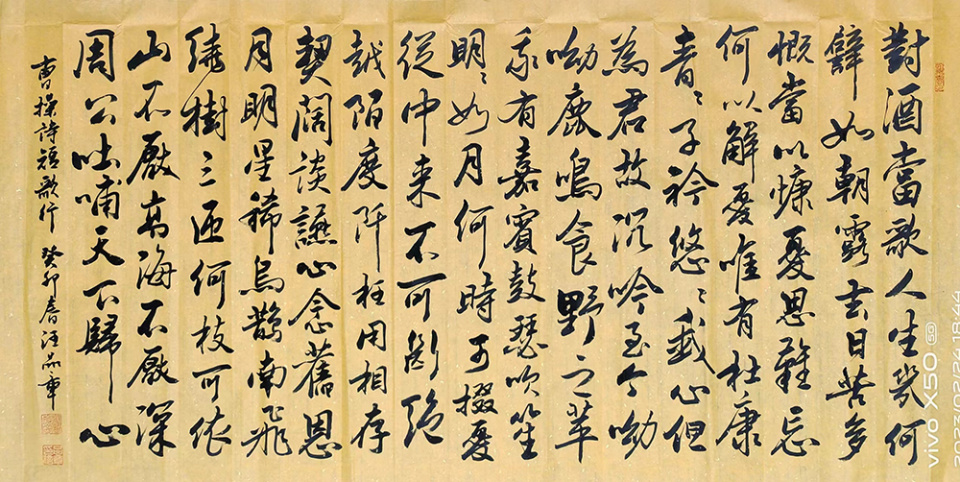 對酒當歌人生幾何
譬如朝露去日苦多
慨當以慷憂思難忘
何以解憂唯有杜康
青〻子衿悠〻我心但
為君故沉吟至今呦
呦鹿鳴食野之苹
我有嘉賓鼓瑟吹笙
明〻如月何時可掇憂
從中来不可斷絕
越陌度阡枉用相存
契闊談讌心念舊恩
月明星稀烏鵲南飛
繞樹三匝何枝可依
山不厭高海不厭深
周公吐哺天下歸心
曹操詩短歌行 癸卯春汪品章
vivo X50 5G
2023/02/24 18:44